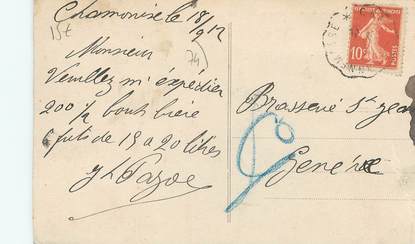 Chamonix le 18/9 12
15€
74
Monsieur
Veuillez m'expédier
200 1/2 bouts bière
6 futs de 15 a 20 litres
10c
POSTES
Brasserie St Jean
Genève